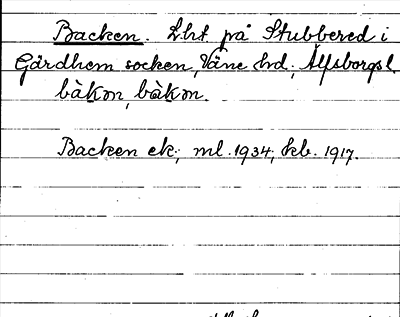 Backen. Lht på Stubbered i
Gärdhem socken, Väne hd, Älfsborgs l.
bàkon, bàkon.
Backen ek; ml. 1934; kb. 1917.